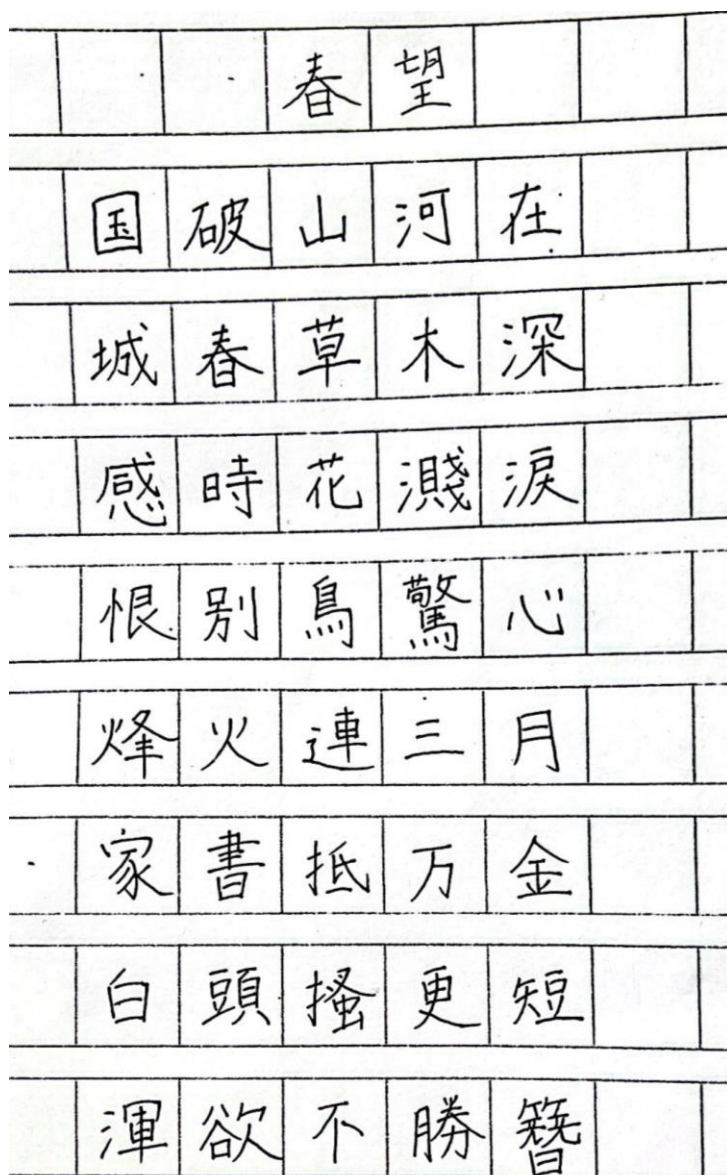 春望
国破山河在
城春草木深
感時花濺淚
恨别鳥驚心
烽火連三月
家書抵万金
白頭搔更短
渾欲不勝簪